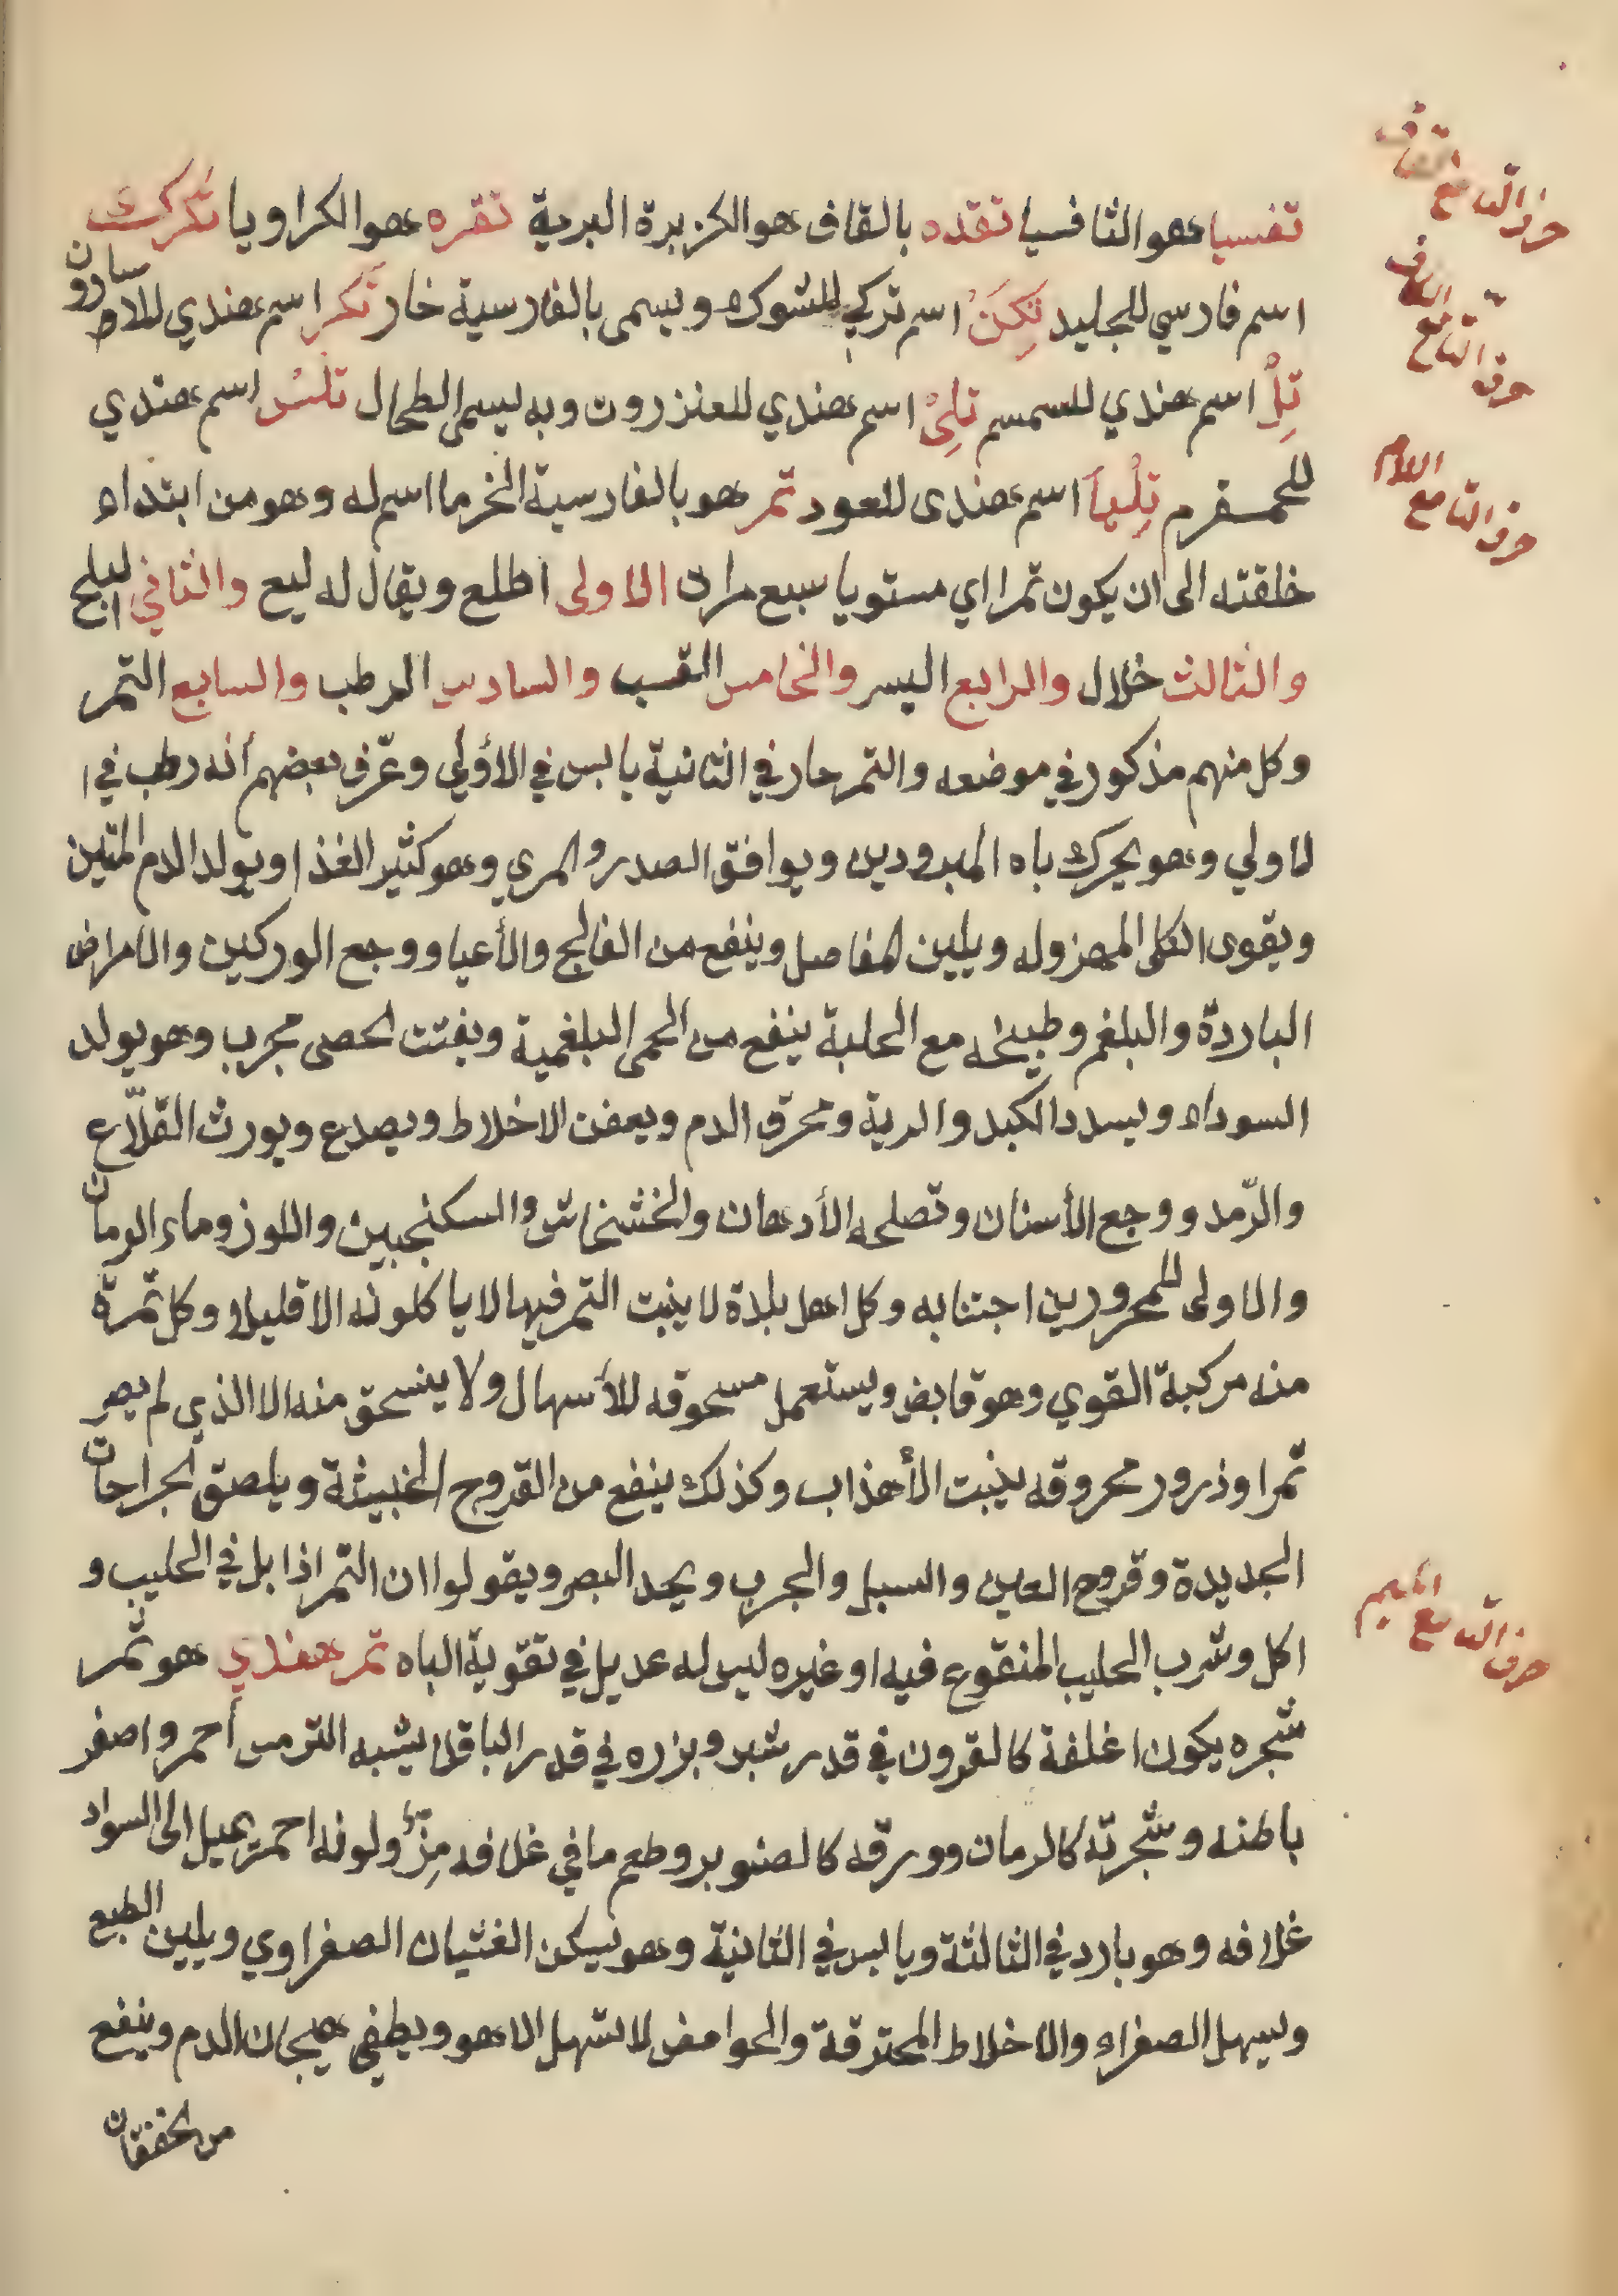 تفسيا هو الثافسيا تقده بالقاف هو الكزبرة البرية تقره هو الكراويا تكرك
اسم فارسي للجليد تِكَنْ اسم تركي للشوك ويسمى بالفارسية خار تكر اسم هندي للاسارون
تِلْ اسم هندي للسمسم تلى اسم هندي للعنزروت وبه يسمى الطحال تلسْ اسم هندي
للحمسفرم تِلْيا اسم هندى للعود تمر هو بالفارسية الخرما اسم له وهو من ابتداء
خلقته الى ان يكون تمرا اي مستويا سبع مرات الاولى اطلع ويقال له ليع والثاني البلح
والثالث خلال والرابع البسر والخامس القسب والسادس الرطب والسابع التمر
وكل منهم مذكور في موضعه والتمر حار في الثانية يابس في الأولى وعرّف بعضهم أنه رطب في ا
لاولي وهو يحرك باه المبرودين ويوافق الصدر والمري وهو كثير الغذا ويولد الدم المتين
ويقوى الكلى المهزوله ويلين المفاصل وينفع من الفالج والأعيا ووجع الوركين والامراض
الباردة والبلغم وطبيخه مع الحلبة ينفع من الحمى البلغمية ويفتت الحصى مجرب وهو يولد
السوداء ويسدد الكبد والرية ومحرق الدم ويعفن الاخلاط ويصدع ويورث القلاّع
والرّمد ووجع الأسنان وتصلحه الأدهان والخشخاش والسكنجبين واللوز وماء الرمان
والاولى للمحرورين اجتنابه وكل اهل بلدة لا ينبت التمر فيها لا ياكلونه الا قليلا وكل تمرة
منه مركبة القوي وهو قابض ويستعمل مسحوقه للأسهال ولا ينسحق منه الا الذي لم يصر
تمرا وذرور محروقه ينبت الأهذاب وكذلك ينفع من القروح الخبيثة ويلصق الجراحات
الجديدة وقروح العين والسبل والجرب ويحد البصر ويقولوا ان التمر اذا بل في الحليب و
اكل وشرب الحليب المنقوع فيه او غيره ليس له عديل في تقوية الباه تمر هندي هو تمر
شجره يكون اغلفة كالقرون في قدر شبر وبزره في قدر الباقلا يشبه الترمس أحمر واصفر
باطنه وشجرته كالرمان وورقه كالصنوبر وطعم ما في غلافه مِزٌ ولونه احمر يميل الى السواد
غلافه وهو بارد في الثالثة ويابس في الثانية وهو يسكن الغثيان الصفراوي ويلين الطبع
ويسهل الصفراء والاخلاط المحترقة والحوامض لا تسهل الا هو ويطفي هيجان الدم وينفع
من الخفقان
حرف التا مع القاف
حرف التا مع الكاف
حرف التا مع اللام
حرف التا مع الميم